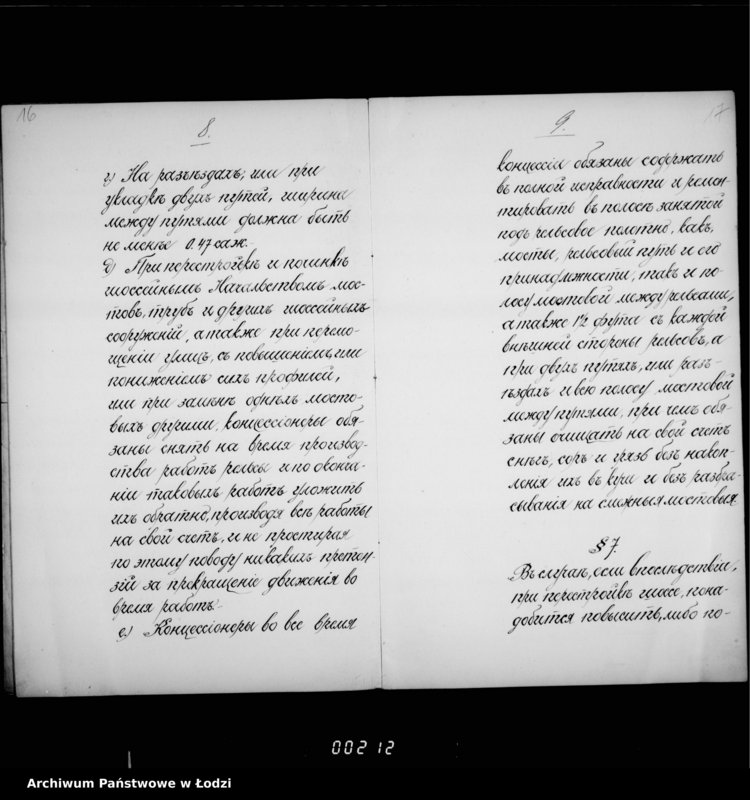 16
8.
г) На разъѣздахъ, или при
укладкѣ двухъ путей, ширина
между путями должна быть
не менѣе 0.47 саж.
д) При перестройкѣ и починкѣ
шоссейнымъ Начальствомъ мос-
товъ, трубъ и другихъ шоссейныхъ
сооруженій, а также при перемо-
щеніи улицъ, съ повышеніемъ, или
пониженіемъ сихъ профилей,
или при замѣнѣ однѣхъ мосто-
выхъ другими, концессіонеры обя-
заны снять на время производ-
ства работъ рельсы и по оконча-
ніи таковыхъ работъ уложить
ихъ обратно, производя всѣ работы
на свой счетъ, и не простирая
по этому поводу никакихъ претен-
зій за прекращеніе движенія во
время работъ.
е) Концессіонеры во все время
17
9.
концессіи обязаны содержать
въ полной исправности и ремон-
тировать въ полосѣ занятой
подъ рельсовое полотно, какъ
мосты, рельсовый путь и его
принадлежности, такъ и по-
лосу мостовой между рельсами,
а также 1½ фута съ каждой
внѣшней стороны рельсовъ, а
при двухъ путяхъ, или разъ-
ѣздахъ и всю полосу мостовой
между путями, при чемъ обя-
заны очищать на свой счетъ
снѣгъ, соръ и грязь безъ накоп-
ленія ихъ въ кучи и безъ разбра-
сыванія на смежныя мостовыя
§ 7.
Въ случаѣ, если впослѣдствіи,
при перестройкѣ шоссе, пона-
добится повысить, либо по-
00212
Archiwum Państwowe w Łodzi